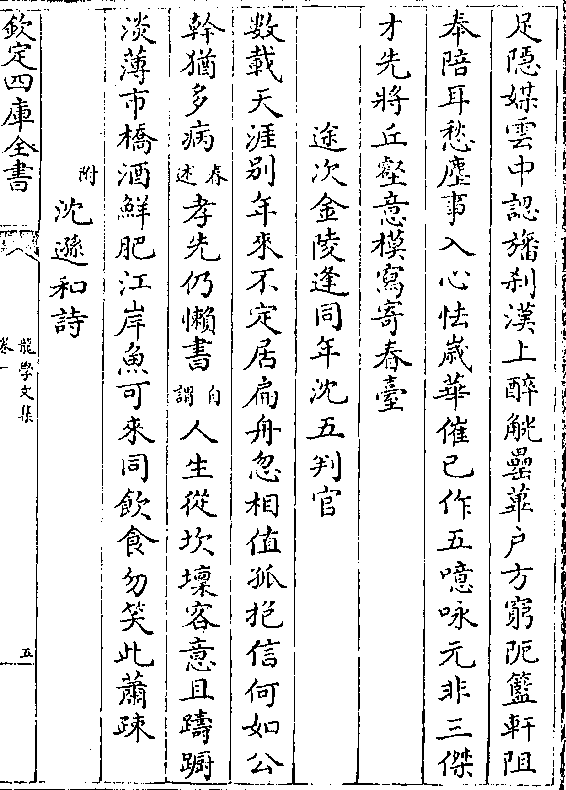 足隱媒雲中認旛刹漢上醉觥罍蓽户方窮阨籃軒阻
奉陪耳愁塵事入心怯嵗華催已作五噫咏元非三傑
才先將丘壑意模寫寄春臺
途次金陵逢同年沈五判官
數載天涯别年來不定居扁舟忽相值孤抱信何如公
幹猶多病春述孝先仍懶書自謂人生從坎壈客意且躊躕
淡薄市橋酒鮮肥江岸魚可來同飲食勿笑此蕭踈
附沈遜和詩
欽定四庫全書
龍學文集
卷一
五